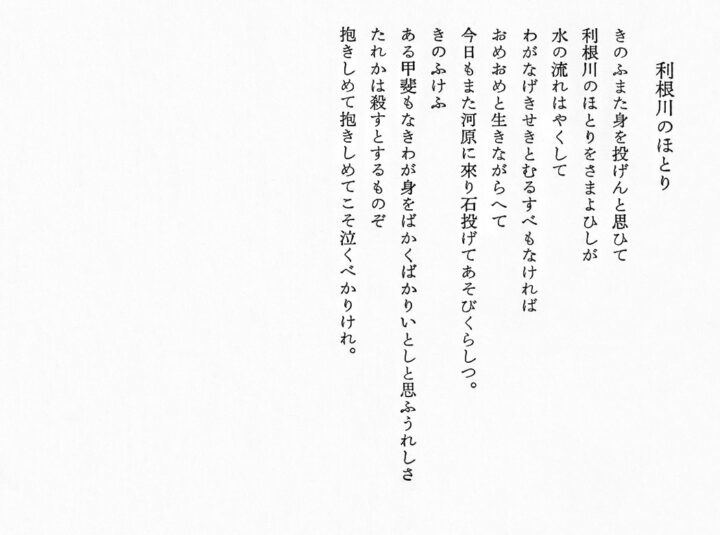 利根川のほとり
きのふまた身を投げんと思ひて
利根川のほとりをさまよひしが
水の流れはやくして
わがなげきせきとむるすべもなければ
おめおめと生きながらへて
今日もまた河原に來り石投げてあそびくらしつ。
きのふけふ
ある甲斐もなきわが身をばかくばかりいとしと思ふうれしさ
たれかは殺すとするものぞ
抱きしめて抱きしめてこそ泣くべかりけれ。